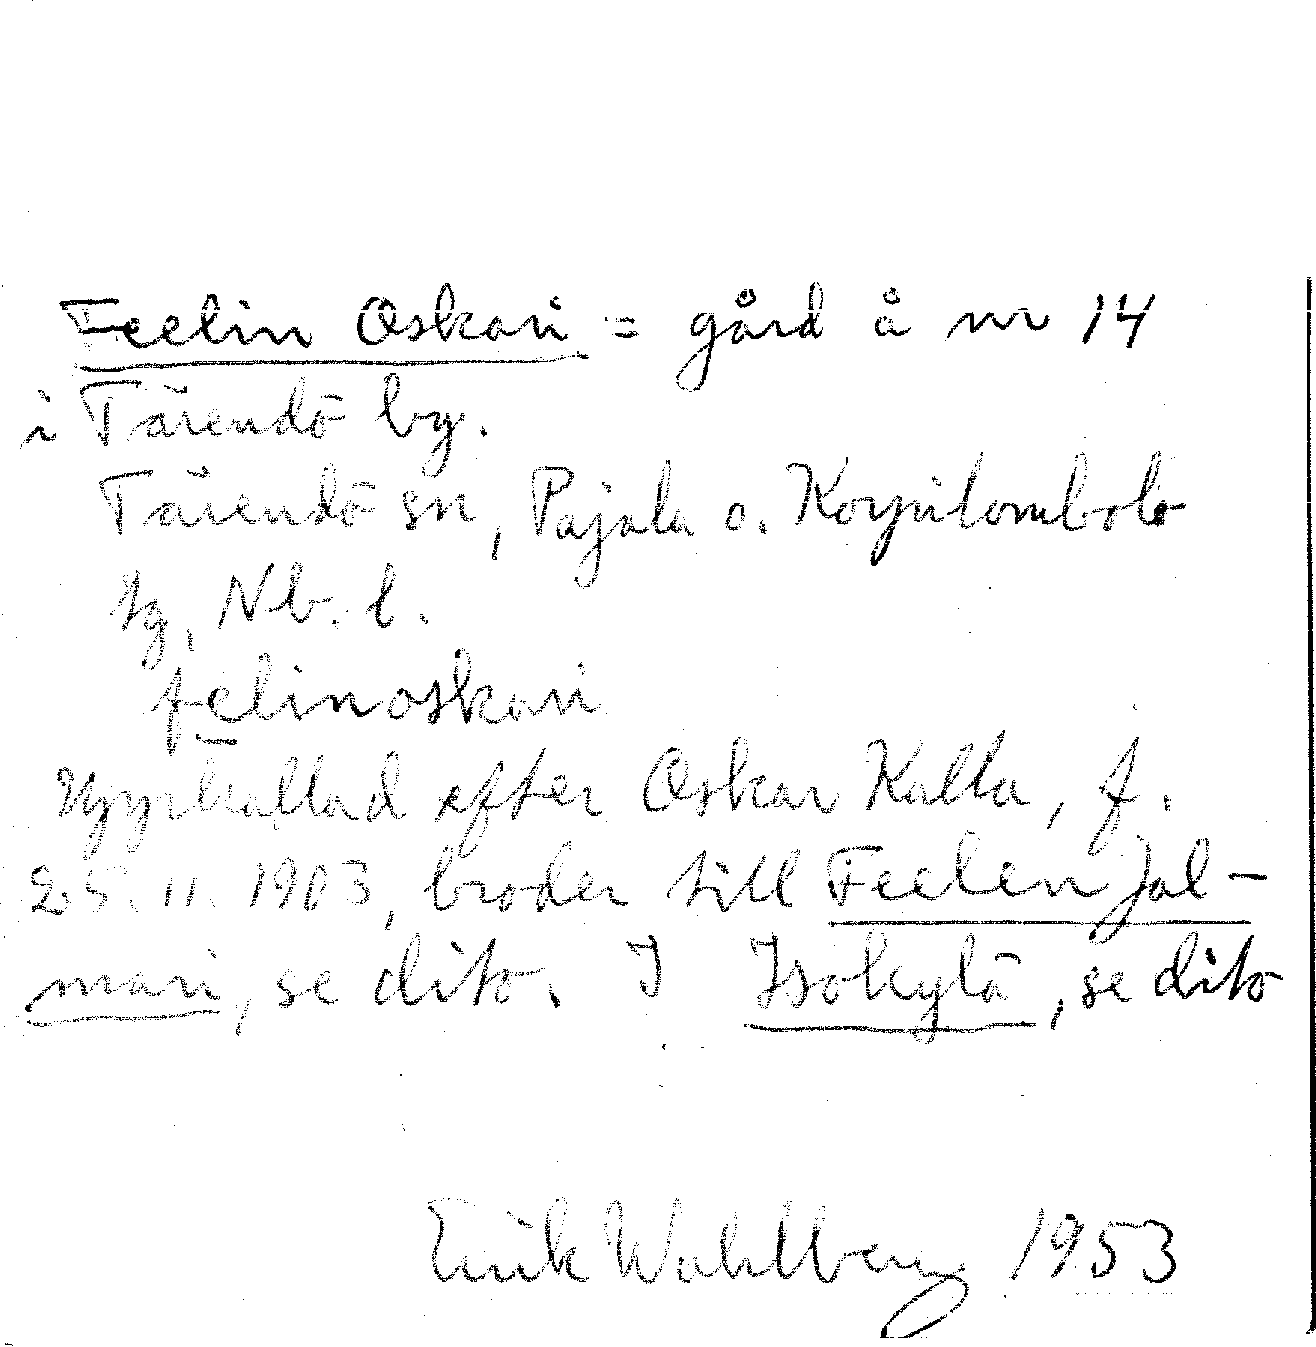 Feelin Oskari = gård å nr 14
i Tärendö by.
Tärendö sn, Pajala o. Korpilombolo
tg, Nb. l.
fēlinoskari
Uppkallad efter Oskar Kalla, f.
25. 11. 1903, broder till Feelen Jal-
mari, se dito. I Isokylä, se dito
Erik Wahlberg 1953